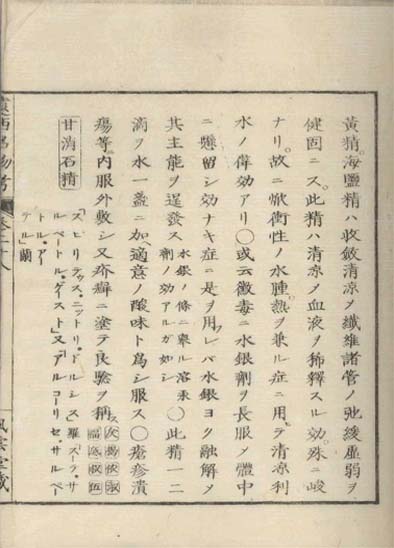 黄精。海鹽精ハ收斂清涼〆纖維諸管ノ弛緩虚弱ヲ
健固ニス。此精ハ清涼〆血液ヲ稀釋スル効。殊ニ峻
ナリ。故ニ焮衝性ノ水腫。熱ヲ兼ル症ニ用テ清涼利
水ノ偉効アリ〇或云黴毒ニ水銀劑ヲ長服〆體中
ニ懸留シ効ナキ症ニ是ヲ用レバ水銀ヨク融解〆
其主能ヲ逞發ス水銀ノ條ニ擧ル溶汞劑ノ効アルガ如シ〇此精一二
滴ヲ水一盞ニ加ヘ適意ノ酸味ト爲シ服ス〇瘡疹潰
瘍等ニ内服外敷シ又疥癬ニ塗テ良驗ヲ稱ス
甘消石精
スピリテュス。ニットリ。ドルシス羅スーテ。サ
ルペートル。ゲイスト」又「アルコーリセ。サルペー
トル。アーテル」蘭
卷二十八
風雲堂藏